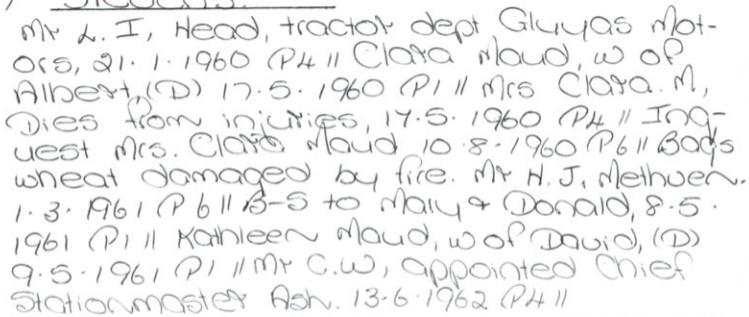 Mr L. I, Head, tractor dept Gluyas Mot-
ors, 21. 1. 1960 (P4 // Clara Maud, w of
Albert, (D) 17. 5. 1960 (P1 // Mrs Clara. M,
Dies from injuries, 17. 5. 1960 (P4 // Inq-
uest Mrs. Clara Maud 10. 8. 1960 (P6 // Bags
wheat damaged by fire. Mr H. J, Methuen.
1. 3. 1961 (P 6 // B-S to Mary & Donald, 8. 5.
1961 (P1 // Kathleen Maud, w of David, (D)
9. 5. 1961 (P1 // Mr C. W, appointed Chief
Stationmaster Ash. 13-6-1962 (P4 //